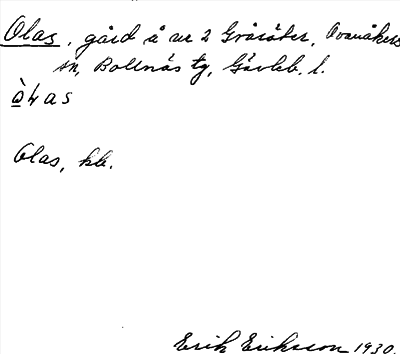 Olas, gård å nr 2 Gråsäter, Ovanåkers
sn, Bollnäs tg, Gävleb. l.
Olas, kb.
Erik Eriksson 1930.